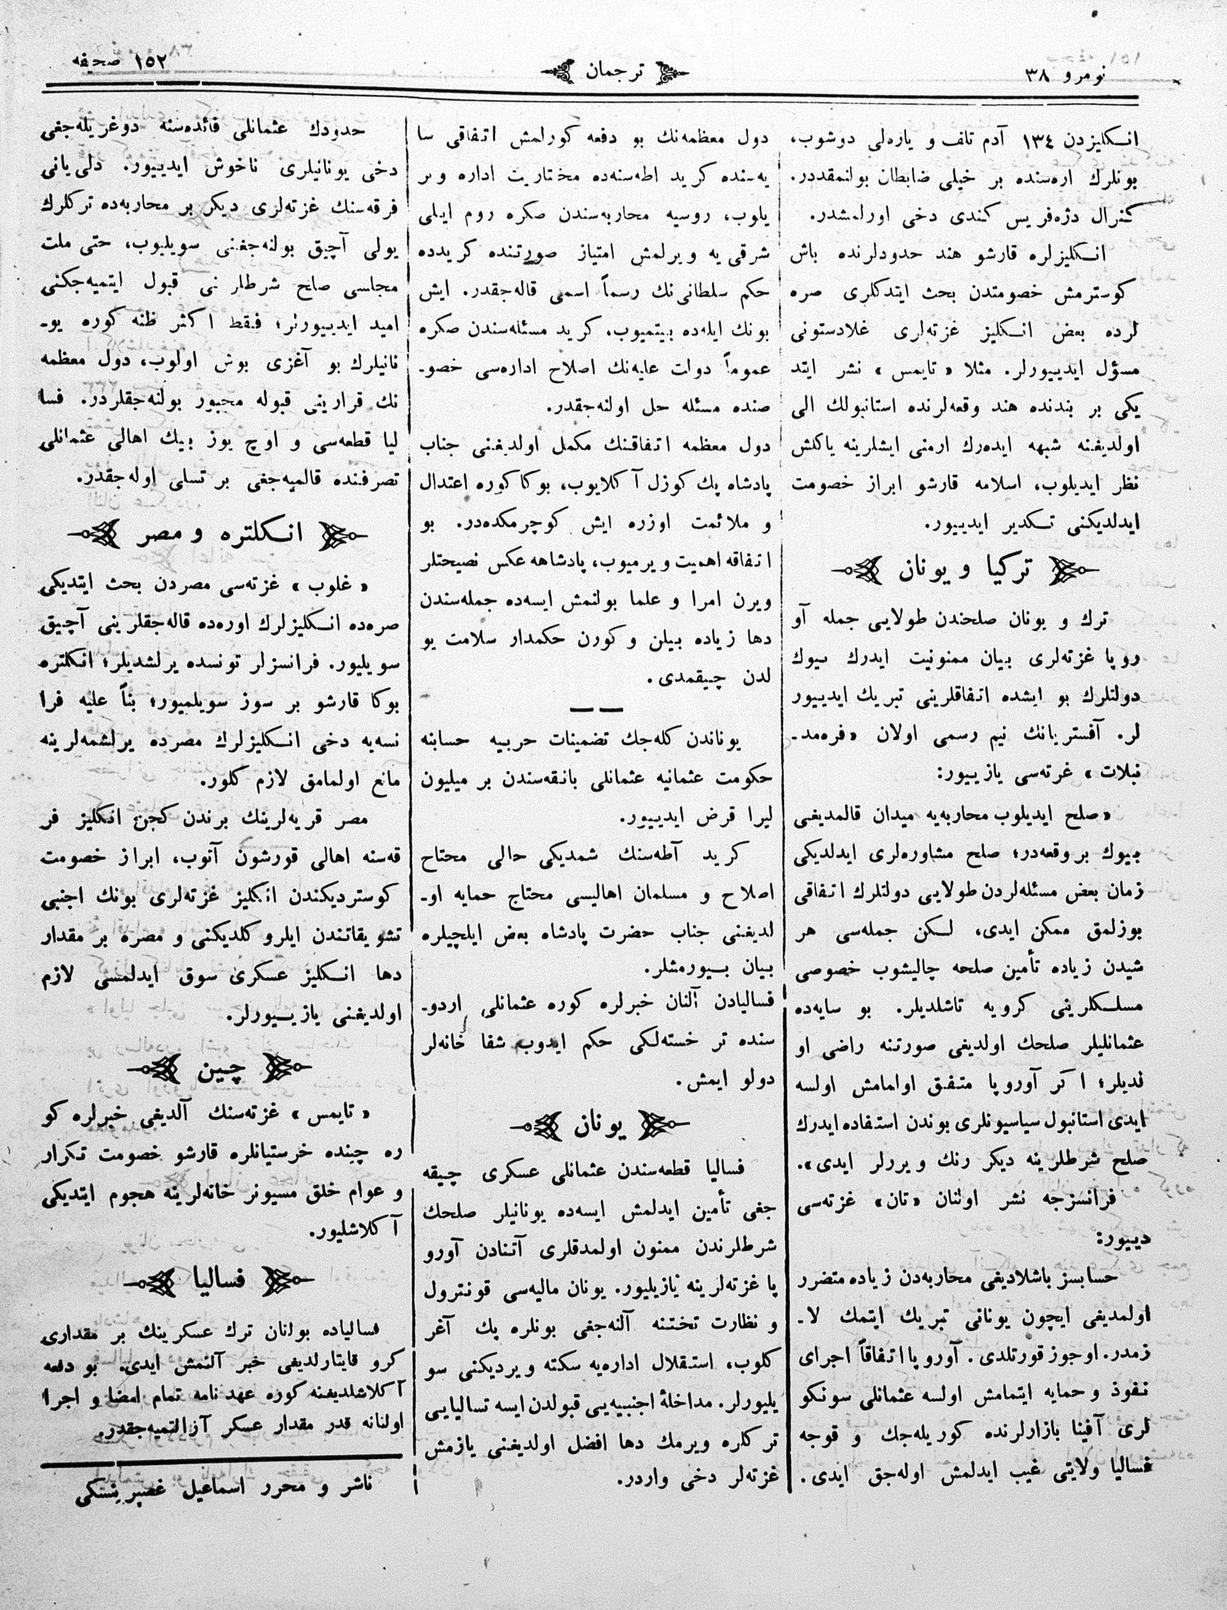 نومرو ٣٨
ترجمان
١٥٢ صحیفه
انـكلیزدن ١٣٤ آدم تلف و یاره‌لی دوشوب،
بونلرك اره‌سنده بر خیلی ضابطان بولنمقددر.
كنرال دژه‌فریس كندی دخی اورلمشدر.
انـكلیزلره قارشو هند حدودلرنده باش
كوسترمش خصومتدن بحث ایتدكلری صره
لرده بعض انـكلیز غزته‌لری غلادستونی
مسؤل ایدییورلر. مثلا « تایمس » نشر ایتد
یكی بر بندنده هند وقعه‌لرنده استانبولك الی
اولدیغنه شبهه ایده‌رك ارمنی ایشلرینه یاكلش
نظر ایدیلوب، اسلامه قارشو ابراز خصومت
ایدلدیكنی تـكدیر ایدییور.
تركیا و یونان
ترك و یونان صلحندن طولایی جمله آو
روپا غزته‌لری بیان ممنونیت ایدرك بیوك
دولتلرك بو ایشده اتفاقلرینی تبریك ایدییور
لر. آفستریانك نیم رسمی اولان «فره‌مد-
نبلات» غرته‌سی یازییور:
«صلح ایدیلوب محاربه‌یه میدان قالمدیغی
بیوك بر وقعه‌در؛ صلح مشاوره‌لری ایدلدیكی
زمان بعض مسئله‌لردن طولایی دولتلرك اتفاقی
بوزلمق ممكن ایدی، لـكن جمله‌سی هر
شیدن زیاده تأمین صلحه چالیشوب خصوصی
مسلـكلرینی كرویه تاشلدیلر. بو سایه‌ده
عثمانلیلر صلحك اولدیغی صورتنه راضی او
لدیلر؛ اكر آوروپا متفق اولمامش اولسه
ایدی استانبول سیاسیونلری بوندن استفاده ایدرك
صلح شرطلرینه دیكر رنك ویررلر ایدی».
فرانسزجه نشر اولنان «تان» غزته‌سی
دییور:
حسابسز باشلادیغی محاربه‌دن زیاده متضرر
اولمدیغی ایچون یونانی تبریك ایتمك لا-
زمدر. اوجوز قورتلدی. آوروپا اتفاقاً اجرای
نفوذ و حمایه ایتمامش اولسه عثمانلی سونكو
لری آفینا بازارلرنده كوریله‌جك و قوجه
فسالیا ولایتی غیب ایدلمش اوله‌جق ایدی.
دول معظمه‌نك بو دفعه كورلمش اتفاقی سا
یه‌سنده كرید اطه‌سنه‌ده مختاریت اداره ویر
یلوب، روسیه محاربه‌سندن صكره روم ایلی
شرقی‌یه ویرلمش امتیاز صورتنده كریدده
حكم سلطانی‌نك رسماً اسمی قاله‌جقدر. ایش
بونك ایله‌ده بیتمیوب، كرید مسئله‌سندن صكره
عموماً دولت علیه‌نك اصلاح اداره‌سی خصو-
صنده مسئله حل اولنه‌جقدر.
دول معظمه اتفاقنك مكمل اولدیغنی جناب
پادشاه پك كوزل آكلایوب، بوكا كوره اعتدال
و ملائمت اوزره ایش كوچرمكده‌در. بو
اتفاقه اهمیت ویرمیوب، پادشاهه عكس نصیحتلر
ویرن امرا و علما بولنمش ایسه‌ده جمله‌سندن
دها زیاده بیلن و كورن حكمدار سلامت یو
لدن چیقمدی.
یوناندن كله‌جك تضمینات حربیه حسابنه
حكومت عثمانیه عثمانلی بانقه‌سندن بر میلیون
لیرا قرض ایدییور.
كرید آطه‌سنك شمدیكی حالی محتاج
اصلاح و مسلمان اهالیسی محتاج حمایه او-
لدیغنی جناب حضرت پادشاه بعض ایلچیلره
بیان بـیورمشلر.
فسالیادن آلنان خبرلره كوره عثمانلی اردو-
سنده تر خسته‌لكی حكم ایدوب شفا خانه‌لر
دولو ایمش.
یونان
فسالیا قطعه‌سندن عثمانلی عسكری چیقه
جغی تأمین ایدلمش ایسه‌ده یونانیلر صلحك
شرطلرندن ممنون اولمدقلری آتنادن آورو
پا غزته‌لرینه یازیلیور. یونان مالیه‌سی قونترول
و نظارت تختنه آلنه‌جغی بونلره پك آغر
كلوب، استقلال اداره‌یه سكته ویردیكنی سو
یلیورلر. مداخلهٔ اجنبیه‌یی قبولدن ایسه تسالیایی
تركلره ویرمك دها افضل اولدیغنی یازمش
غزته‌لر دخی واردر.
حدودك عثمانلی فائده‌سنه دوغریله‌جغی
دخی یونانیلری ناخوش ایدییور. دلی یانی
فرقه‌سنك غزته‌لری دیكر بر محاربه‌ده تركلرك
یولی آچیق بولنه‌جغنی سویلیوب، حتی ملت
مجلسی صلح شرطلرنی قبول ایتمیه‌جكنی
امید ایدییورلر؛ فقط اكثر ظنه كوره یو-
نانیلرك بو آغزی بوش اولوب، دول معظمه
نك قرارینی قبوله مجبور بولنه‌جقلردر. فسا
لیا قطعه‌سی و اوچ یوز بیك اهالی عثمانلی
تصرفنده قالمیه‌جغی بر تسلی اوله‌جقدر.
انـكلتره و مصر
« غلوب » غزته‌سی مصردن بحث ایتدیكی
صره‌ده انـكلیزلرك اوره‌ده قاله‌جقلرینی آچیق
سویلیور. فرانسزلر تونسده یرلشدیلر؛ انكلتره
بوكا قارشو بر سوز سویلمیور؛ بناً علیه فرا
نسه‌یه دخی انـكلیزلرك مصرده یرلشمه‌لرینه
مانع اولمامق لازم كلور.
مصر قریه‌لرینك برندن كچن انكلیز فر
قه‌سنه اهالی قورشون آتوب، ابراز خصومت
كوستردیكندن انكلیز غزته‌لری بونك اجنبی
تشویقاتندن ایلرو كلدیكنی و مصره بر مقدار
دها انـكلیز عسكری سوق ایدلمسی لازم
اولدیغنی یازیـیورلر.
چین
« تایمس » غزته‌سنك آلدیغی خبرلره كو
ره چینده خرستیانلره قارشو خصومت تكرار
و عوام خلق مسیونر خانه‌لرینه هجوم ایتدیكی
آكلاشلیور.
فسالیا
فسالیاده بولنان ترك عسكرینك بر مقداری
كرو قایتارلدیغی خبر آلنمش ایدی. بو دفعه
آكلاشلدیغنه كوره عهدنامه تمام امضا و اجرا
اولنانه قدر مقدار عسكر آزالتمیه‌جقدر.
ناشر و محرر اسماعیل غصپرینسكی